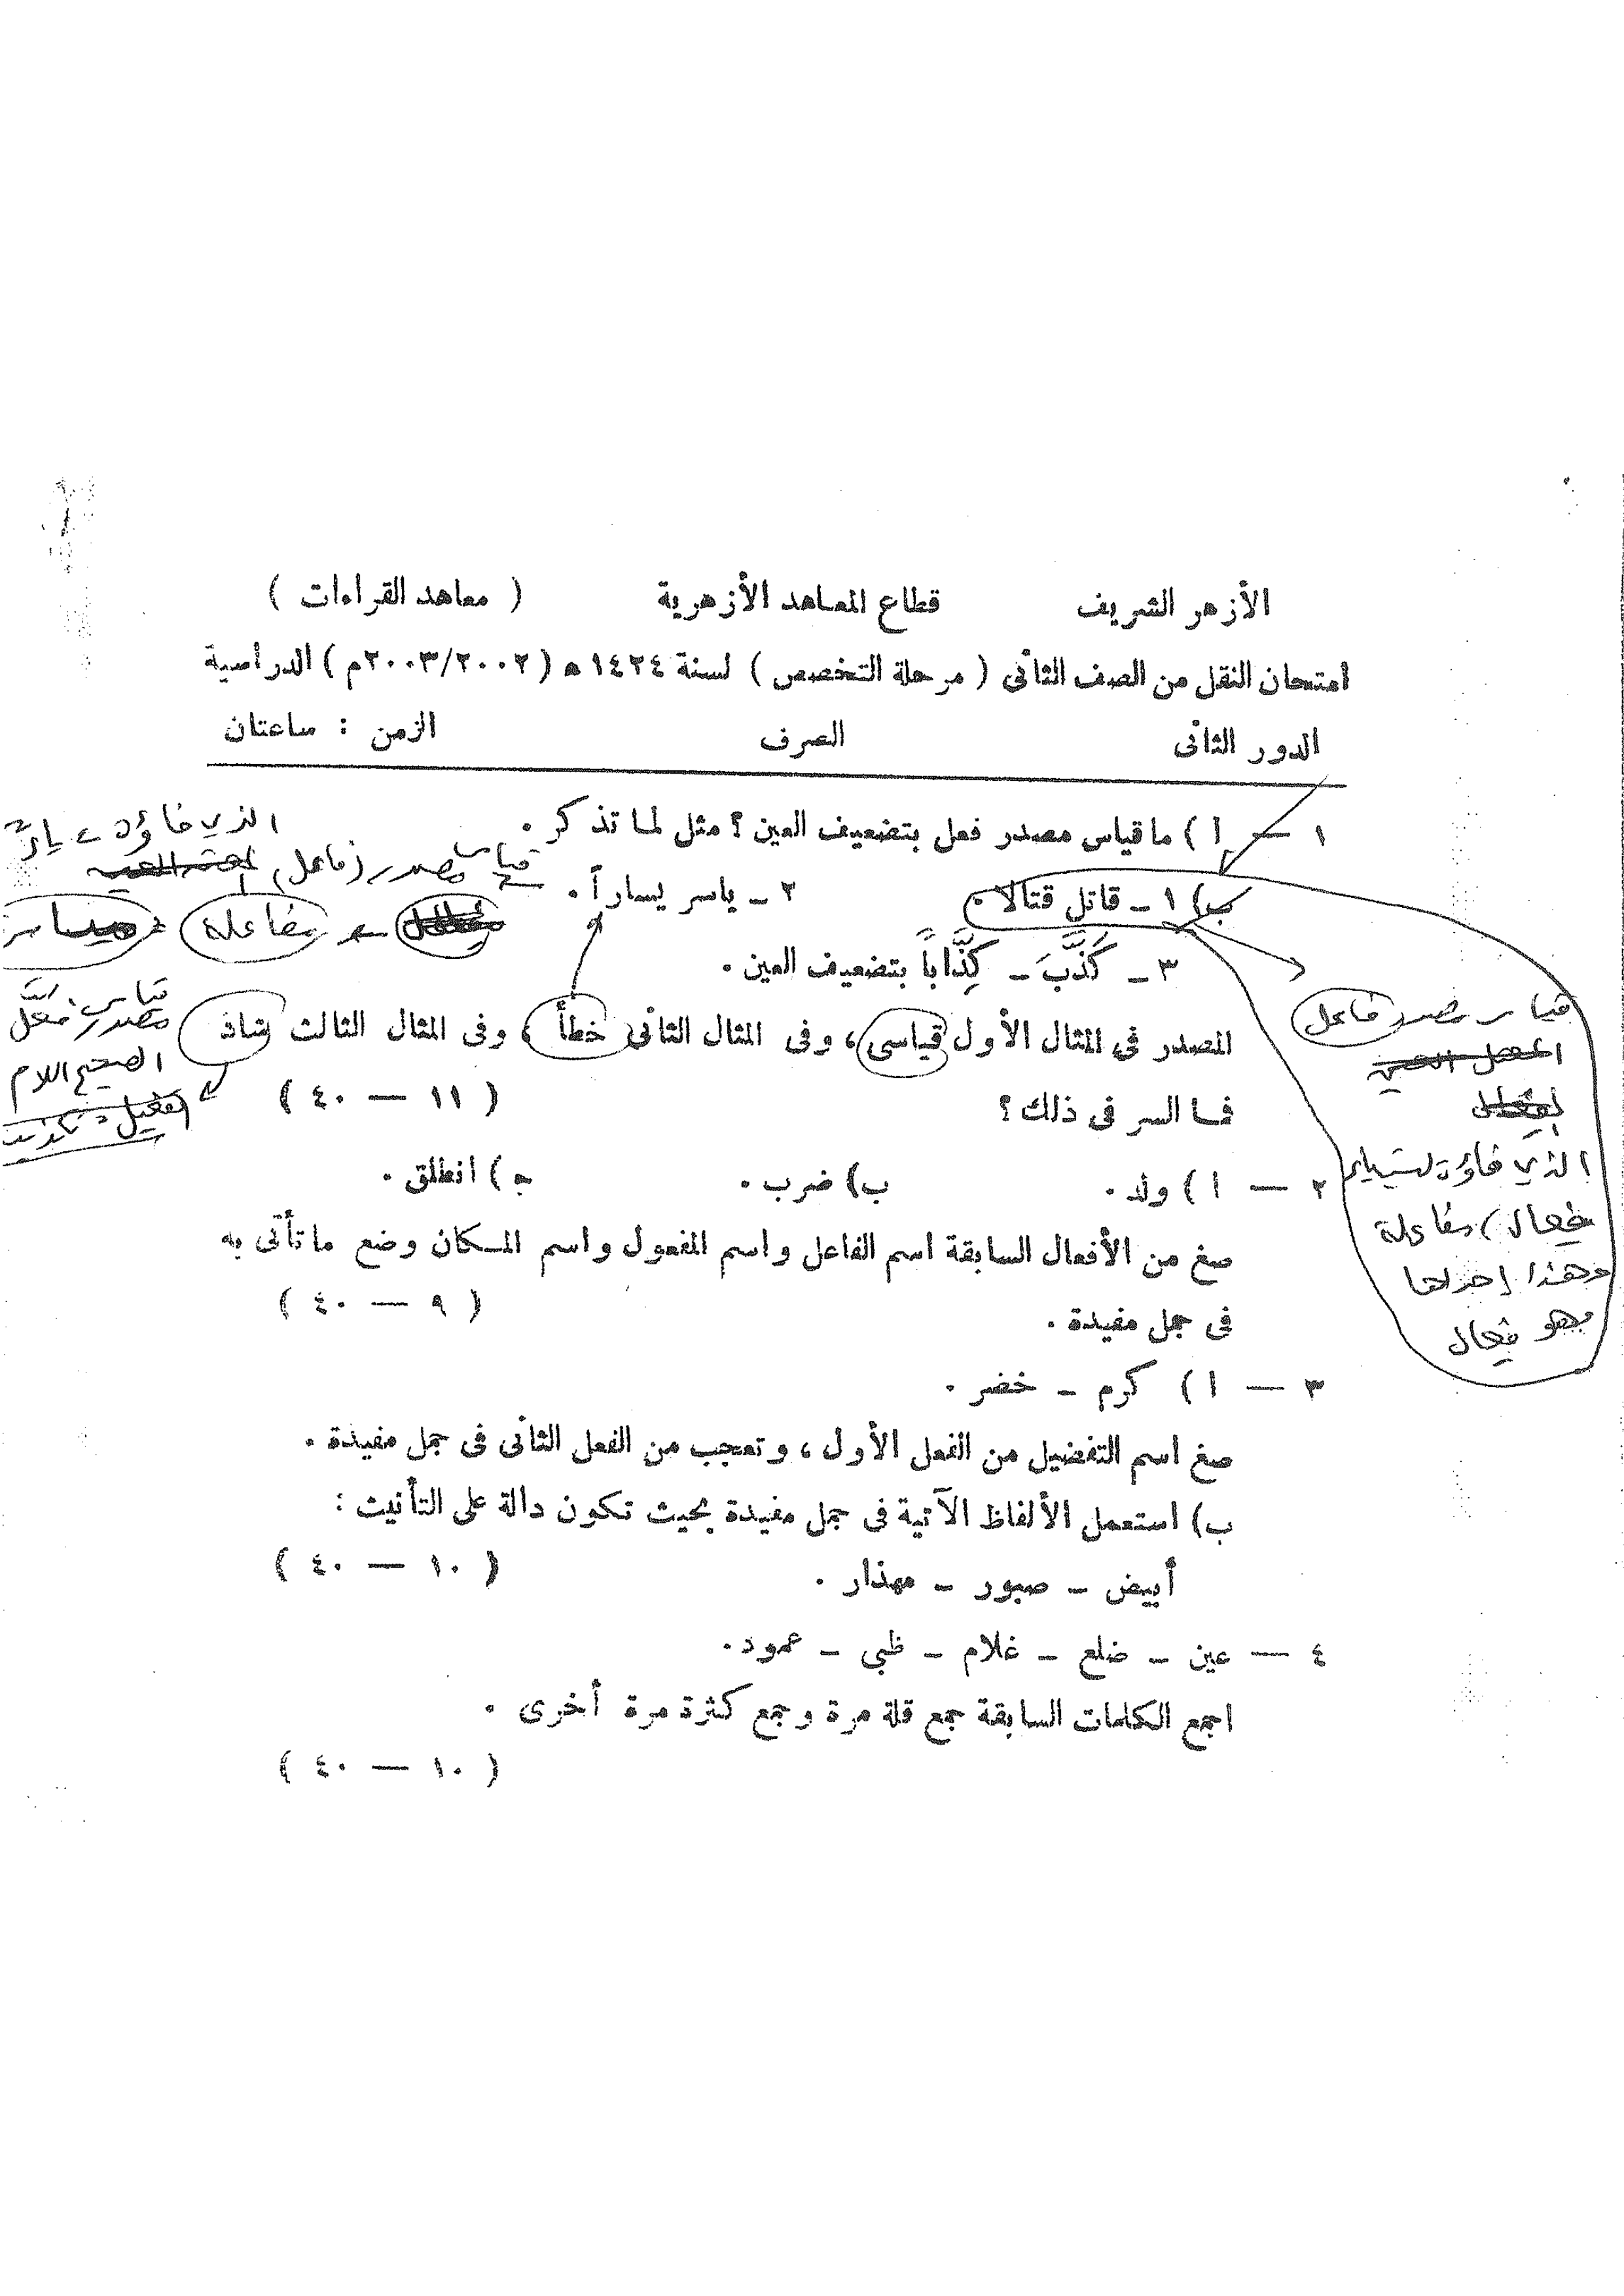 الأزهر الشريف قطاع المعاهد الأزهرية ( معاهد القراءات )
امتحان النقل من الصف الثانى ( مرحلة التخصص ) لسنة ١٤٢٤ ه ( ٢٠٠٣/٢٠٠٢م ) الدراسية
الدور الثانى الصرف الزمن : ساعتان
١ — أ ) ما قياس مصدر فعل بتضعيف العين ؟ مثل لما تذكر .
ب) ١ - قاتل قتالا . ٢ - ياسر يساراً .
٣ - كَذَّبَ - كِذَّاباً بتضعيف العين .
المصدر فى المثال الأول قياسى ، وفى المثال الثانى خطأ ، وفى المثال الثالث شاذ
فما السر فى ذلك ؟ ( ١١ — ٤٠ )
٢ — ا ) ولد . ب) ضرب . ج ) انطلق .
صغ من الأفعال السابقة اسم الفاعل واسم المفعول واسم المكان وضع ما تأتى به
فى جمل مفيدة . ( ٩ — ٤٠ )
٣ — ا ) كرم - خضر .
صغ اسم التفضيل من الفعل الأول ، وتعجب من الفعل الثانى فى جمل مفيدة .
ب) استعمل الألفاظ الآتية فى جمل مفيدة بحيث تكون دالة على التأنيث :
أبيض - صبور - مهذار . ( ١٠ — ٤٠ )
٤ — عين - ضلع - غلام - ظبى - عمود .
اجمع الكلمات السابقة جمع قلة مرة وجمع كثرة مرة أخرى .
( ١٠ — ٤٠ )
الذي فاؤه ياء
قياس مصدر (فاعل)
مفاعلة
قياس
مصدر فعَّل
الصحيح اللام
تفعيل = تكذيب
قياس مصدر فاعل
الذي فاؤه ليست ياء
فعال / مفاعلة
وهذا إحداها
وهو فعال